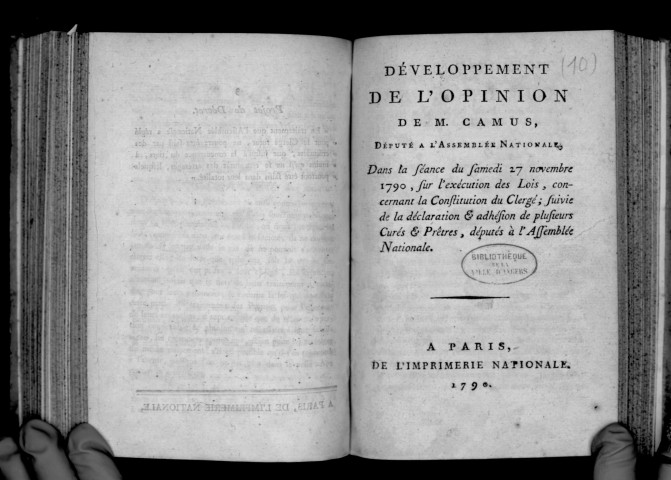 (10)
DÉVELOPPEMENT
DE L'OPINION
DE M. CAMUS,
DÉPUTÉ A L'ASSEMBLÉE NATIONALE,
Dans la ſéance du ſamedi 27 novembre
1790, ſur l'exécution des Lois, con-
cernant la Conſtitution du Clergé; ſuivie
de la déclaration & adhéſion de pluſieurs
Curés & Prêtres, députés à l'Aſſemblée
Nationale.
BIBLIOTHÈQUE
DE LA
VILLE D'ANGERS
A PARIS,
DE L'IMPRIMERIE NATIONALE.
1790.
A PARIS, DE L'IMPRIMERIE NATIONALE.